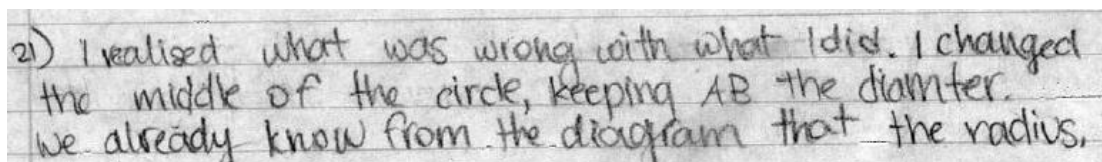 21) I realised what was wrong with what I did. I changed
the middle of the circle, keeping AB the diamter.
We already know from the diagram that the radius,